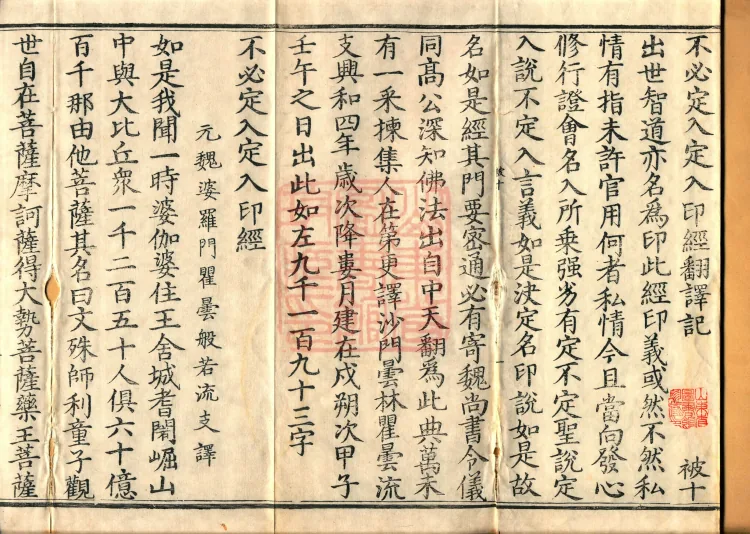 不必定入定入印經翻譯記
被十
出世智道亦名爲印此經印義或然不然私
情有指未許官用何者私情今且當向發心
修行證會名入所乘强劣有定不定聖說定
入說不定入言義如是決定名印說如是故
被十
名如是經其門要密通必有寄魏尚書令儀
同髙公深知佛法出自中天翻爲此典萬未
有一采揀集人在第更譯沙門曇林瞿曇流
支興和四年歲次降婁月建在戌朔次甲子
壬午之日出此如左九千一百九十三字
不必定入定入印經
元魏婆羅門瞿曇般若流支譯
如是我聞一時婆伽婆住王舍城耆闍崛山
中與大比丘衆一千二百五十人俱六十億
百千那由他菩薩其名曰文殊師利童子觀
世自在菩薩摩訶薩得大勢菩薩藥王菩薩